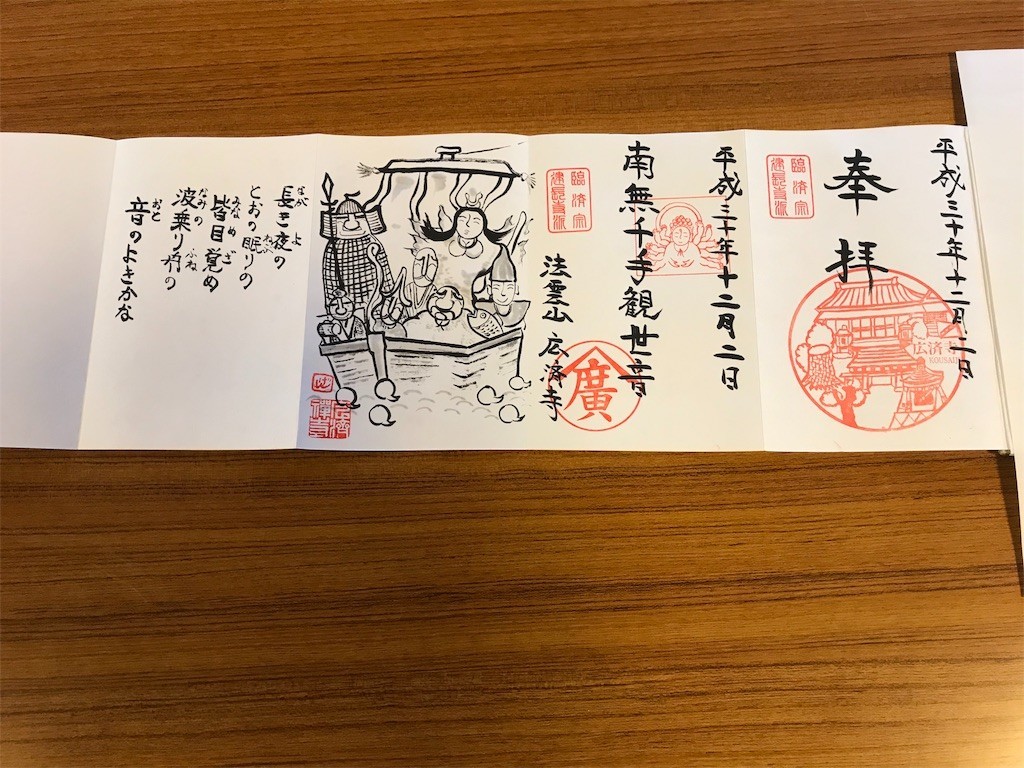 平成三十年十二月二日
奉拝
臨済宗
建長寺派
広済寺
KOUSAIJI
平成三十年十二月二日
南無千手観世音
臨済宗
建長寺派
法雲山 広済寺
廣
長き夜の
ながよ
とおの眠りの
ねむ
皆目覚め
みなめざ
波乗り舟の
なみのふね
音のよきかな
おと